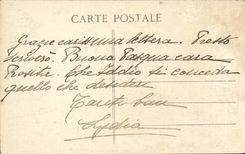 CARTE POSTALE
Grazie carissima lettera. Presto
scriverò. Buona Pasqua cara
Rosita. Che Iddio ti conceda
quello che desideri
Tanti baci
Lydia